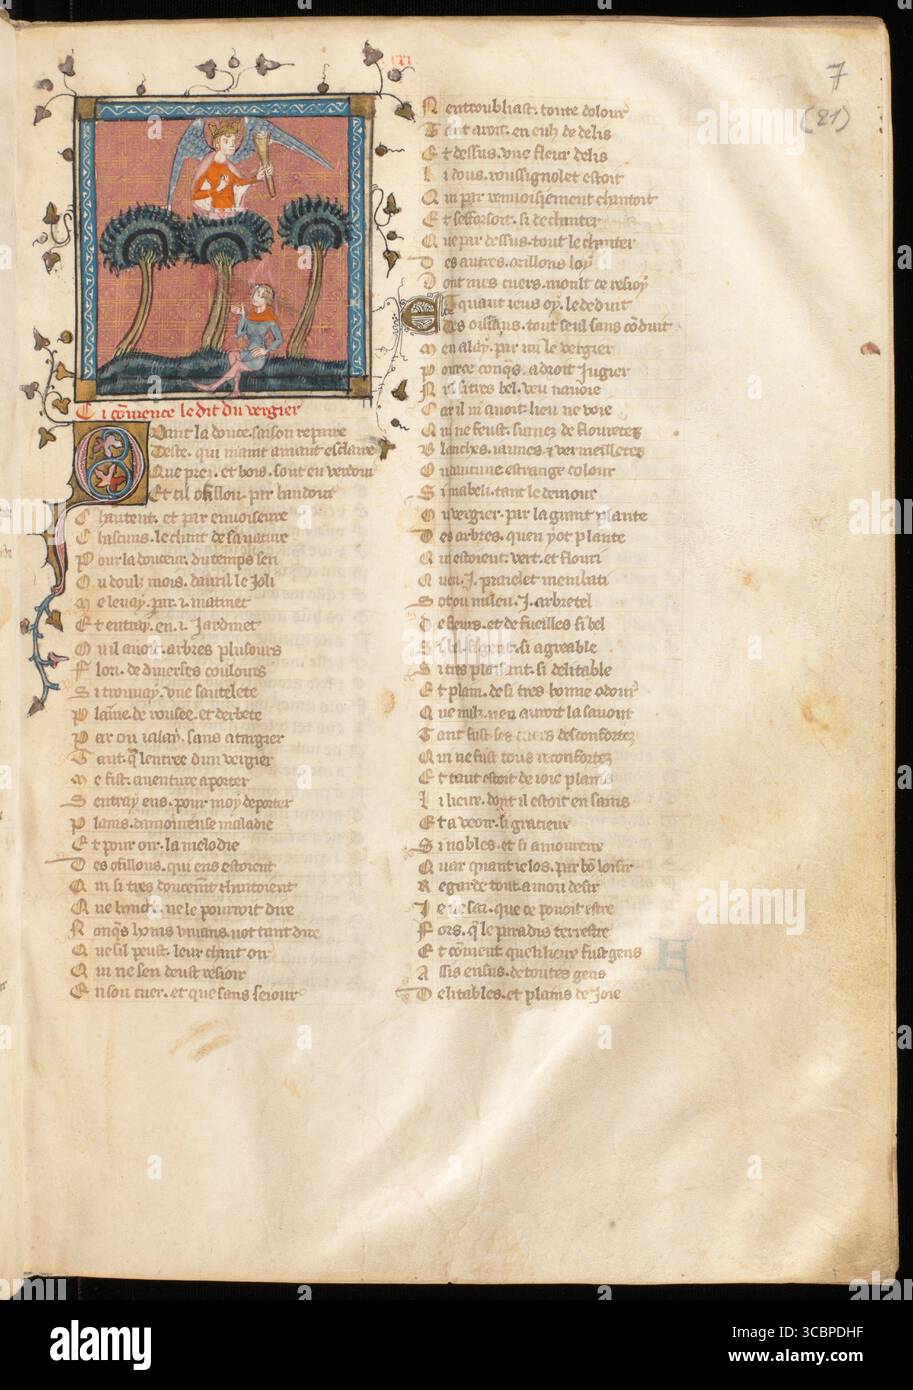 xxi
7
(21)
Ci cõmence le dit du vergier
Quant la douce saison repaire
Deste. qui maint amant esclaire
Que prez. et bois. sont en verdour
Et cil oisillon. par baudour
Chantent. et par enuoiseure
Chascuns. le chant de sa nature
Pour la douceur. du temps seri
Ou doulz mois. dauril le ioli
Me leuay. par .i. matinet
Et entray. en .i. iardinet
Ou il auoit. arbres plusours
Flori. de diuerses coulours
Si trouuay. vne sentelete
Plaine. de rousee. et derbete
Par ou ialay. sans atargier
Tant. q̃ lentree dun vergier
Me fist. auenture aporter
Sentray ens. pour moy deporter
Plains. damoureuse maladie
Et pour oir. la melodie
Des oisillons. qui ens estoient
Qui si tres doucem̃t chantoient
Que bouche. ne le pourroit dire
Nonq̃s homs viuans. not tant dire
Que sil peust. leur chant oir
Qui ne sen deust resioir
En son cuer. et que sans seiour
Nentroubliast. toute dolour
Tant auoit. en eulz de delis
Et dessus. vne fleur de lis
Li dous. roussignolet estoit
Qui par renuoisement chantoit
Et sefforsoit. si de chanter
Que par dessus. tout le chanter
Des autres. oisillons loy
Dont mes cuers. moult sesioy
Et quant ieus oy. le deduit
Des oisiaus. tout seul sans cõduit
Men alay. par mi le vergier
Pour ce conq̃s. a droit iugier
Nul si tres bel. veu nauoie
Car il ni auoit. lieu ne voie
Qui ne feust. semez de flouretes
Blanches. iaunes. & vermeilletes
Ou dautune estrange colour
Si mabeli. tant le demour
Ou vergier. par la grant plante
Des arbres. quen yot plante
Qui estoient. vert. et flouri
Quen .I. praielet membati
Sot ou milieu .I. arbretel
De fleurs. et de fueilles si bel
Si bel. si gent. si agreable
Si tres plaisant. si delitable
Et plain. de si tres bonne odour
Que nulz. nen auroit la sauour
Tant fust ses cuers desconfortez
Qui ne fust tous reconfortez
Et tant estoit de ioie plains
Li lieux. dont il estoit en saints
Et a veoir. si gracieux
Si nobles. et si amoureux
Quar quant ie los. par bõ loisir
Regarde tout a mon desir
Ie ne sai. que ce pouoit estre
Fors. q̃ le paradis terrestre
Et cõment quel lieux fust gens
Assis ensus. de toutes gens
Delitables. et plains de ioie
alamy
Image ID: 3CBPDHF
www.alamy.com